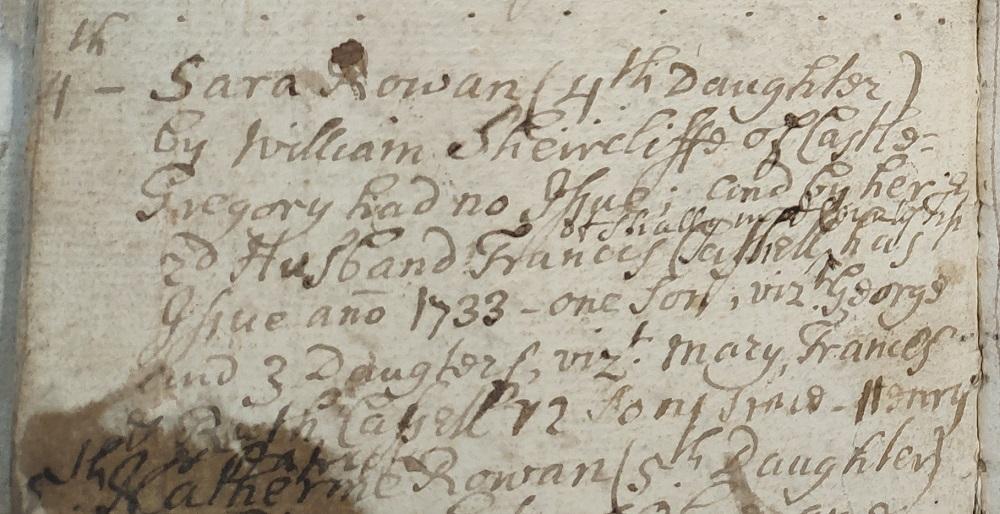 4th – Sara Rowan (4th Daughter)
by William Sheircliffe of Castle-
Gregory had no Issue; and by her
2d Husband Francis Cashell, has
Issue ano 1733 – one son, vizt. George
and 3 Daugters, vizt. Mary, Frances
& Ruth Cashell Henry
5th Katherine Rowan (5th Daughter)